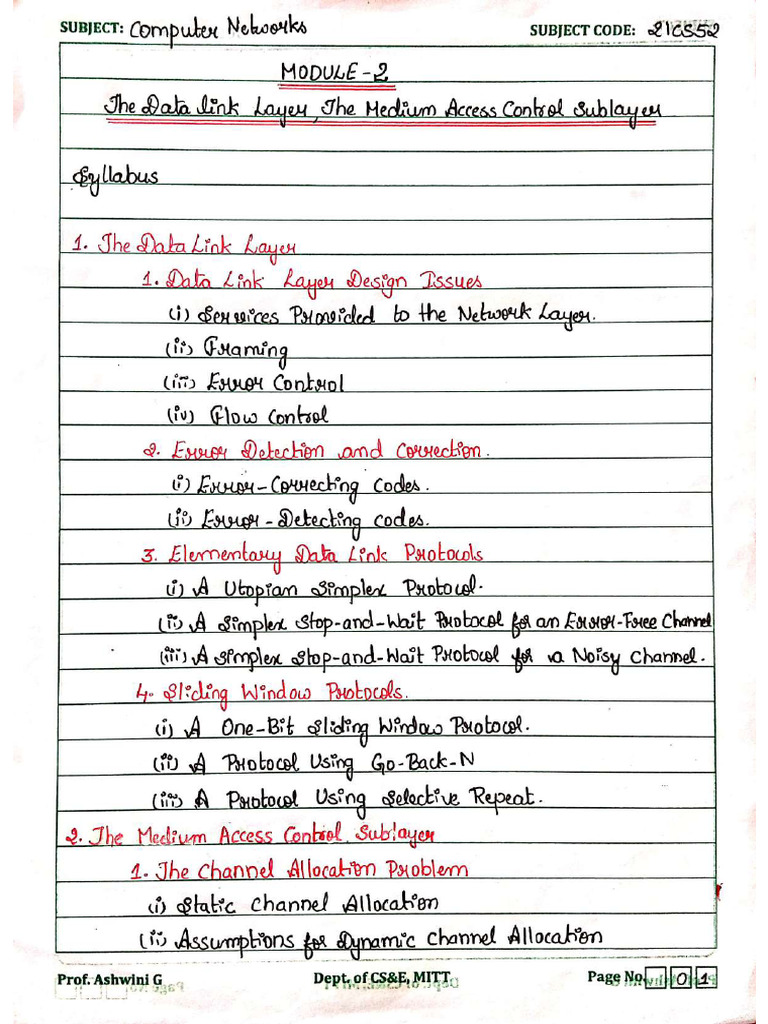 SUBJECT: Computer Networks SUBJECT CODE: 21CS52
MODULE-2
The Data Link Layer, The Medium Access Control Sublayer
Syllabus
1. The Data Link Layer
1. Data Link Layer Design Issues
(i) Services Provided to the Network Layer.
(ii) Framing
(iii) Error Control
(iv) Flow Control
2. Error Detection and Correction.
(i) Error-Correcting Codes.
(ii) Error-Detecting Codes.
3. Elementary Data Link Protocols
(i) A Utopian Simplex Protocol.
(ii) A Simplex Stop-and-Wait Protocol for an Error-Free Channel
(iii) A Simplex Stop-and-Wait Protocol for a Noisy Channel.
4. Sliding Window Protocols.
(i) A One-Bit Sliding Window Protocol.
(ii) A Protocol Using Go-Back-N
(iii) A Protocol Using Selective Repeat.
2. The Medium Access Control Sublayer
1. The Channel Allocation Problem
(i) Static Channel Allocation
(ii) Assumptions for Dynamic Channel Allocation
Prof. Ashwini G Dept. of CS&E, MITT Page No. 0 1